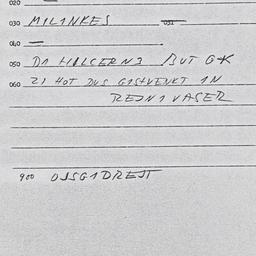 020
030 MILINKES 031
040
050 DI HILCERNE BUT G*K
060 ZI HOT DUS GISHVENKT IN
REJNI VASER
900 OJSGIDREJT